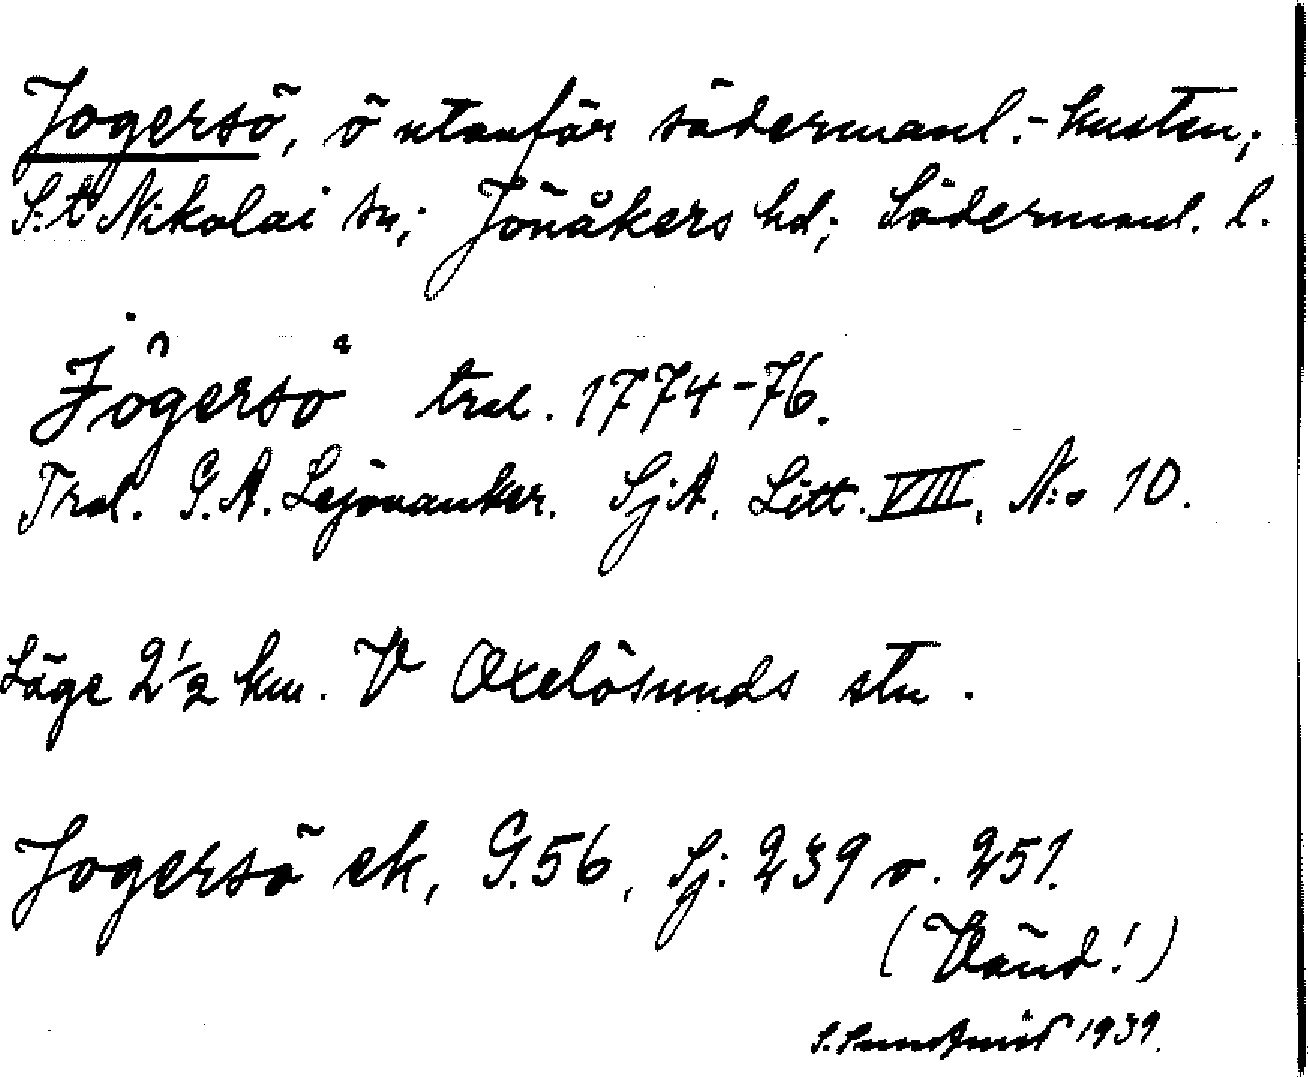 Jogersö, ö utanför södermanl.-kusten;
S:t Nikolai sn; Jönåkers hd; Södermanl. l.
Jögersö trol. 1774-76.
Trol. G.A. Lejonanker. SjA. Litt. VIII, N:o 10.
Läge 2 1/2 km. V Oxelösunds stn.
Jogersö ek, G.56, Sj: 239 o. 251.
(Vänd!)
S. 1939.